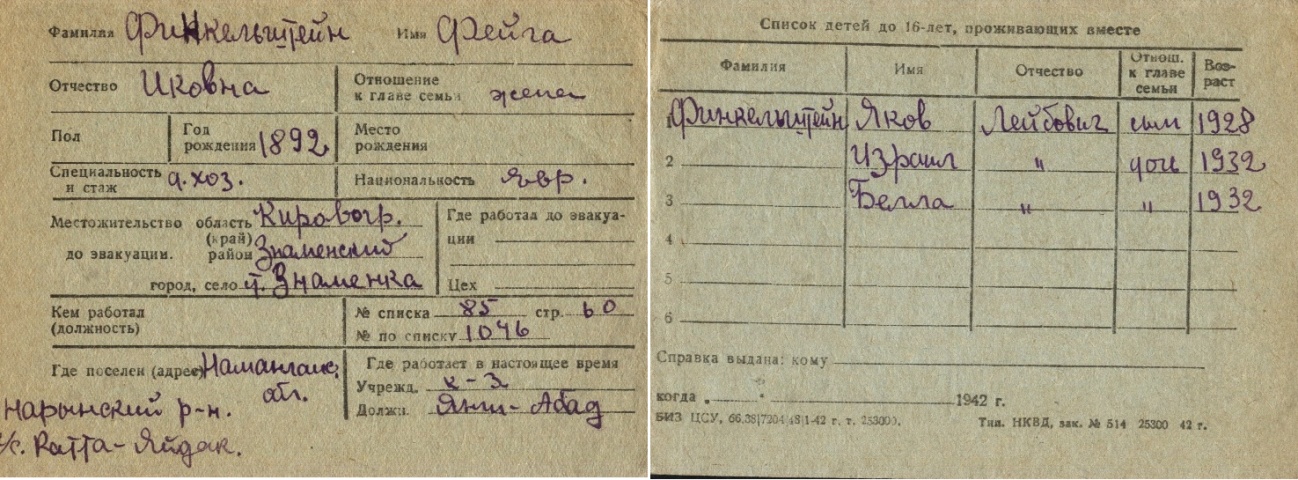 Фамилия Финкельштейн Имя Фейга
Отчество Иковна Отношение к главе семьи жена
Пол Год рождения 1892 Место рождения
Специальность и стаж д.хоз. Национальность явр.
Местожительство до эвакуации. область (край) Кировогр. Где работал до эвакуации
район Знаменский
город, село г. Знаменка Цех
Кем работал (должность) № списка 85 стр. 60
№ по списку 1046
Где поселен (адрес) Наманганс. обл. Где работает в настоящее время
Учрежд. к-з
Нарынский р-н. Должн. Янги-Абад
к/с. Катта-Яйдак.
Список детей до 16-лет, проживающих вместе
Фамилия Имя Отчество Отнош. к главе семьи Возраст
1 Финкельштейн Яков Лейбович сын 1928
2 Израил " дочь 1932
3 Белла " " 1932
4
5
6
Справка выдана: кому
когда „ " 1942 г.
БИЗ ЦСУ, 66.38|7204|48|1-42 г. т. 253000. Тип. НКВД, зак. № 514 25300 42 г.